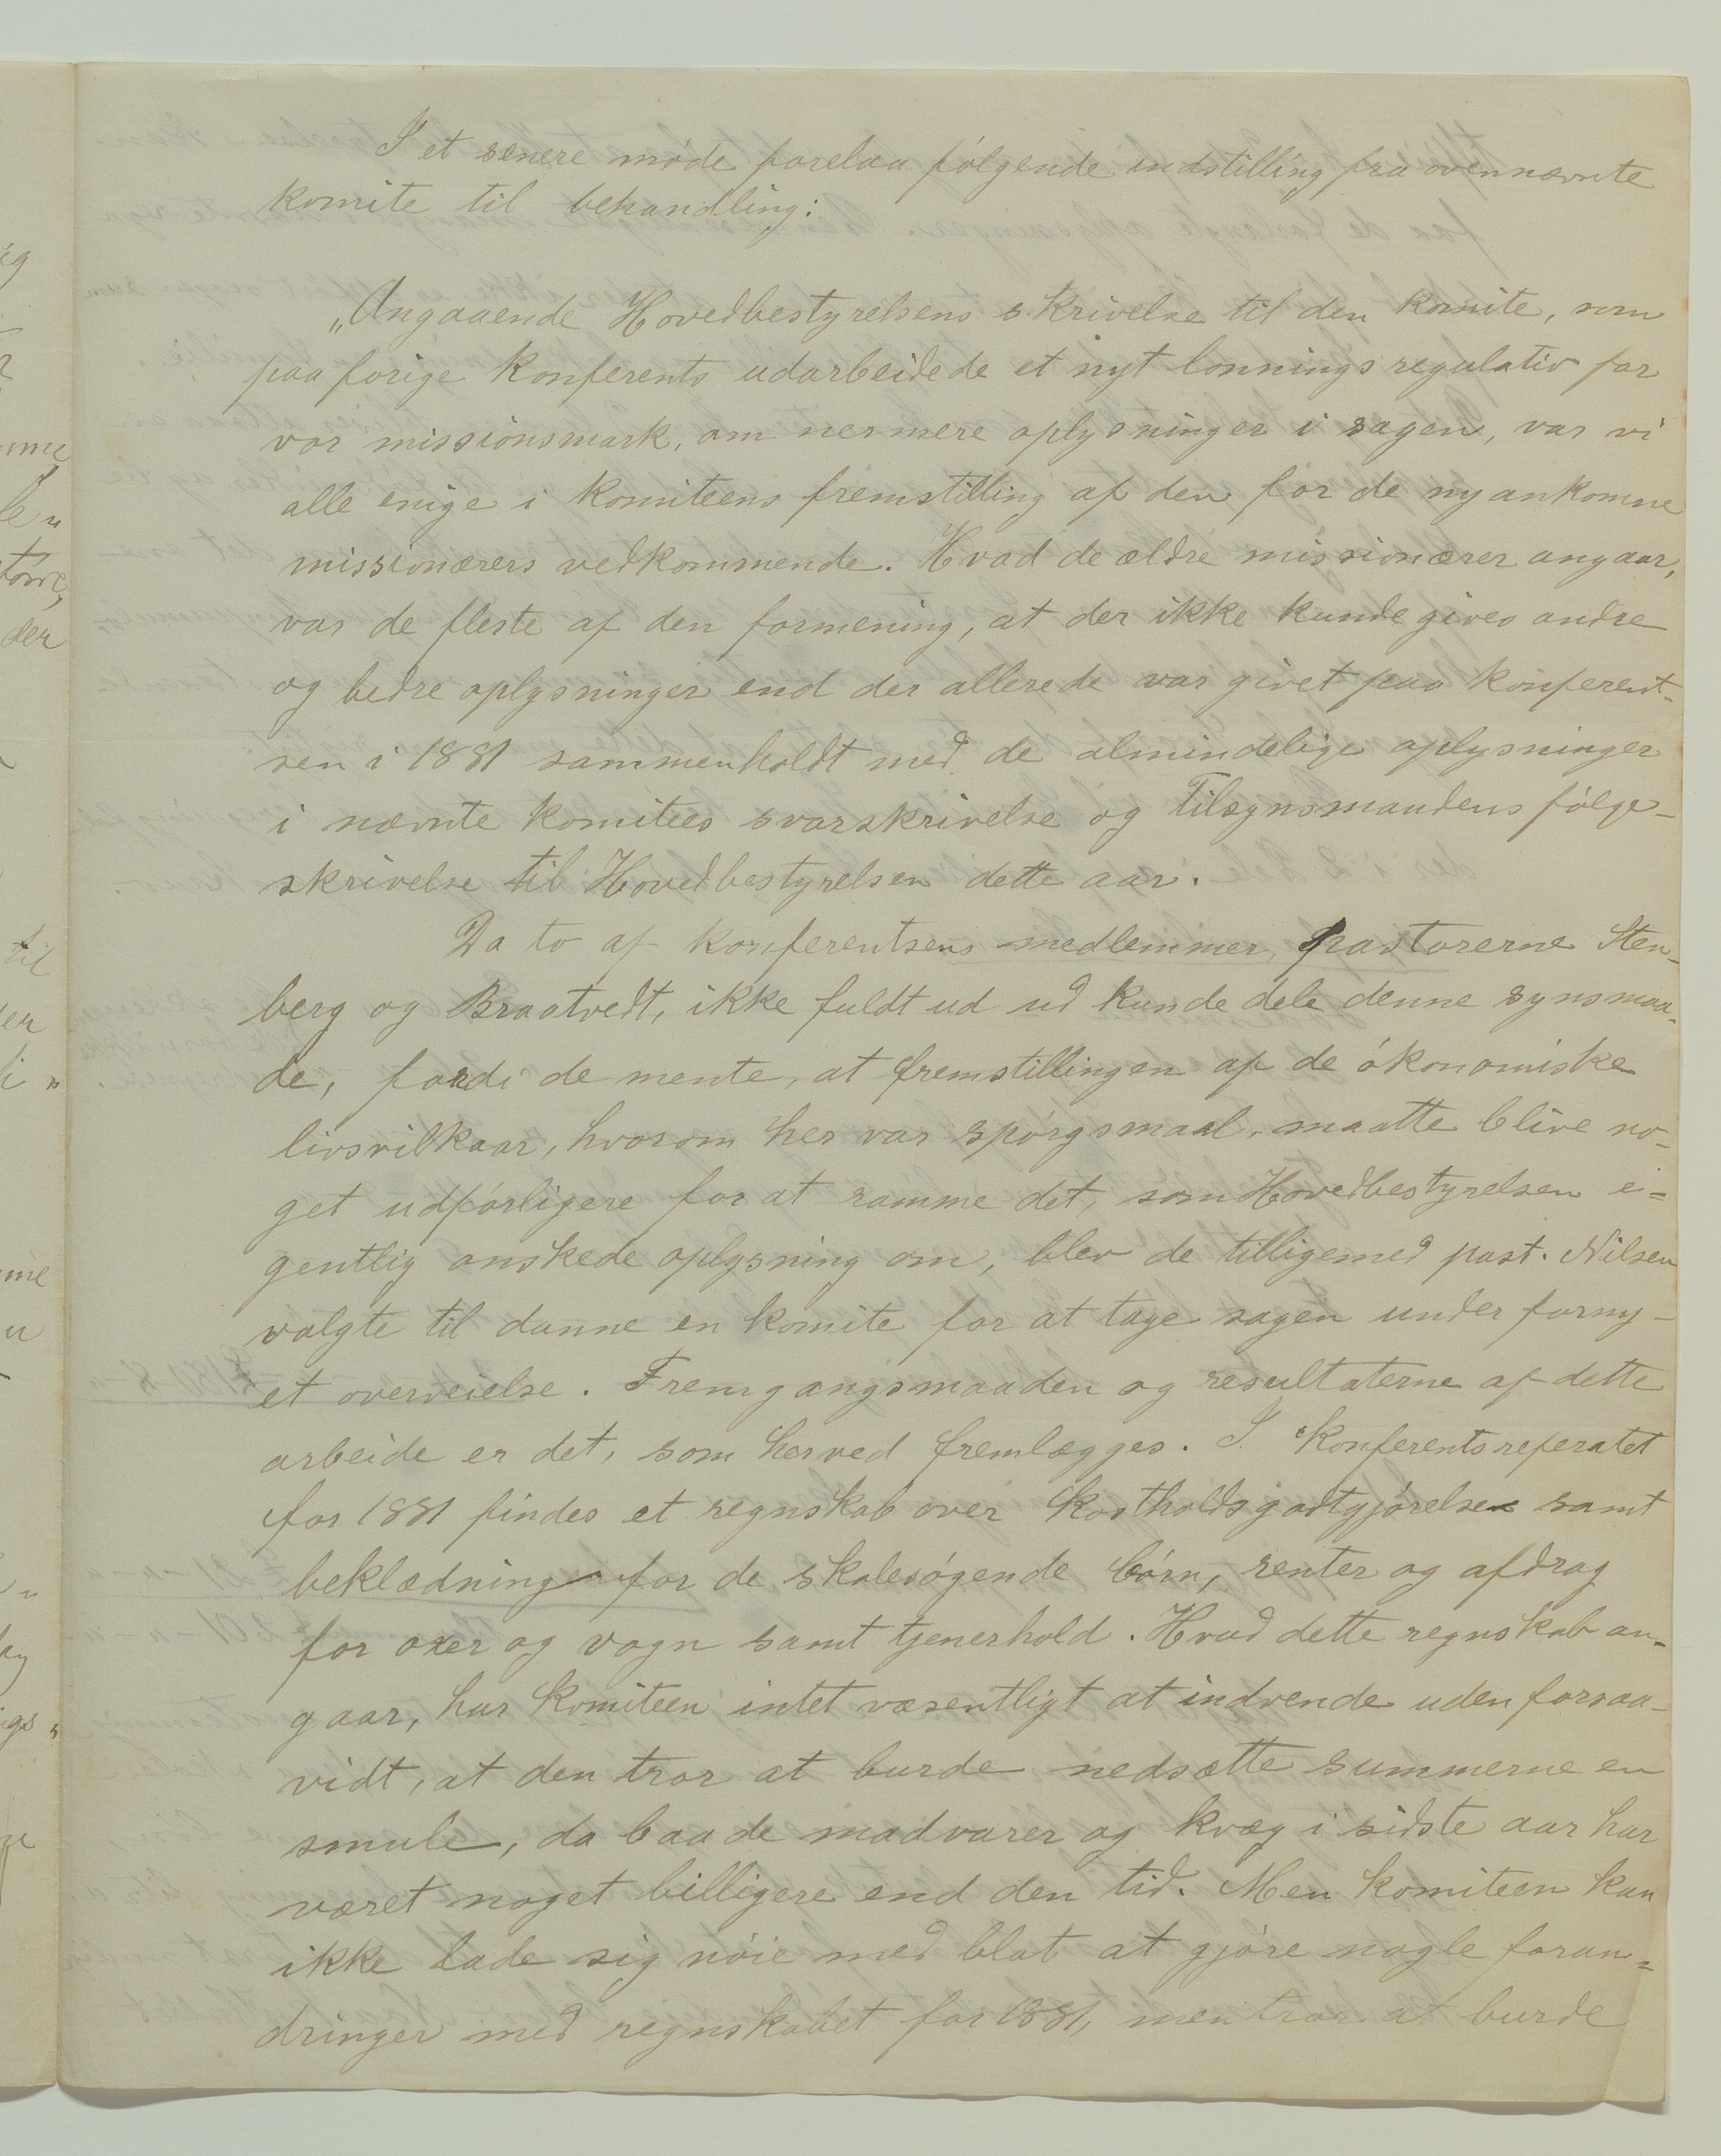 I et senere møde forelaa følgende indstilling fra ovennævnte
komite til behandling:
„Angaaende Hovedbestyrelsens skrivelse til den komite, som
paa forige konferents udarbeidede et nyt lønningsregulativ for
vor missionsmark, om nermere oplysninger i sagen, var vi
alle enige i komiteens fremstilling af den for de nyankomne
missionærers vedkommende. Hvad de ældre missionærer angaar,
var de fleste af den formening, at der ikke kunde gives andre
og bedre oplysninger end der allerede var givet paa konferent-
sen i 1881 sammenholdt med de almindelige oplysninger
i nævnte komitees svarskrivelse og Tilsynsmandens følge-
skrivelse til Hovedbestyrelsen dette aar.
Da to af konferentsens medlemmer, pastorerne Sten-
berg og Braatvedt, ikke fuldt ud ud kunde dele denne synsmaa-
de, fordi de mente, at fremstillingen af de økonomiske
livsvilkaar, hvorom her var spørgsmaal, maatte blive no-
get udførligere for at ramme det, som Hovedbestyrelsen e-
gentlig ønskede oplysning om, blev de tilligemed past. Nilsen
valgte til danne en komite for at tage sagen under forny-
et overveielse. Fremgangsmaaden og resultaterne af dette
arbeide er det, som herved fremlægges. I Konferentsreferatet
for 1881 findes et regnskab over kostholdsgodtgjørelse samt
beklædning for de skolesøgende børn, renter og afdrag
for oxer og vogn samt tjenerhold. Hvad dette regnskab an-
gaar, har komiteen intet væsentligt at indvende uden forsaa-
vidt, at den tror at burde nedsætte summerne en
smule, da baade madvarer og kvæg i sidste aar har
været noget billigere end den tid. Men komiteen kan
ikke lade sig nøie med blot at gjøre nogle foran-
dringer med regnskabet for 1881, men tror at burde